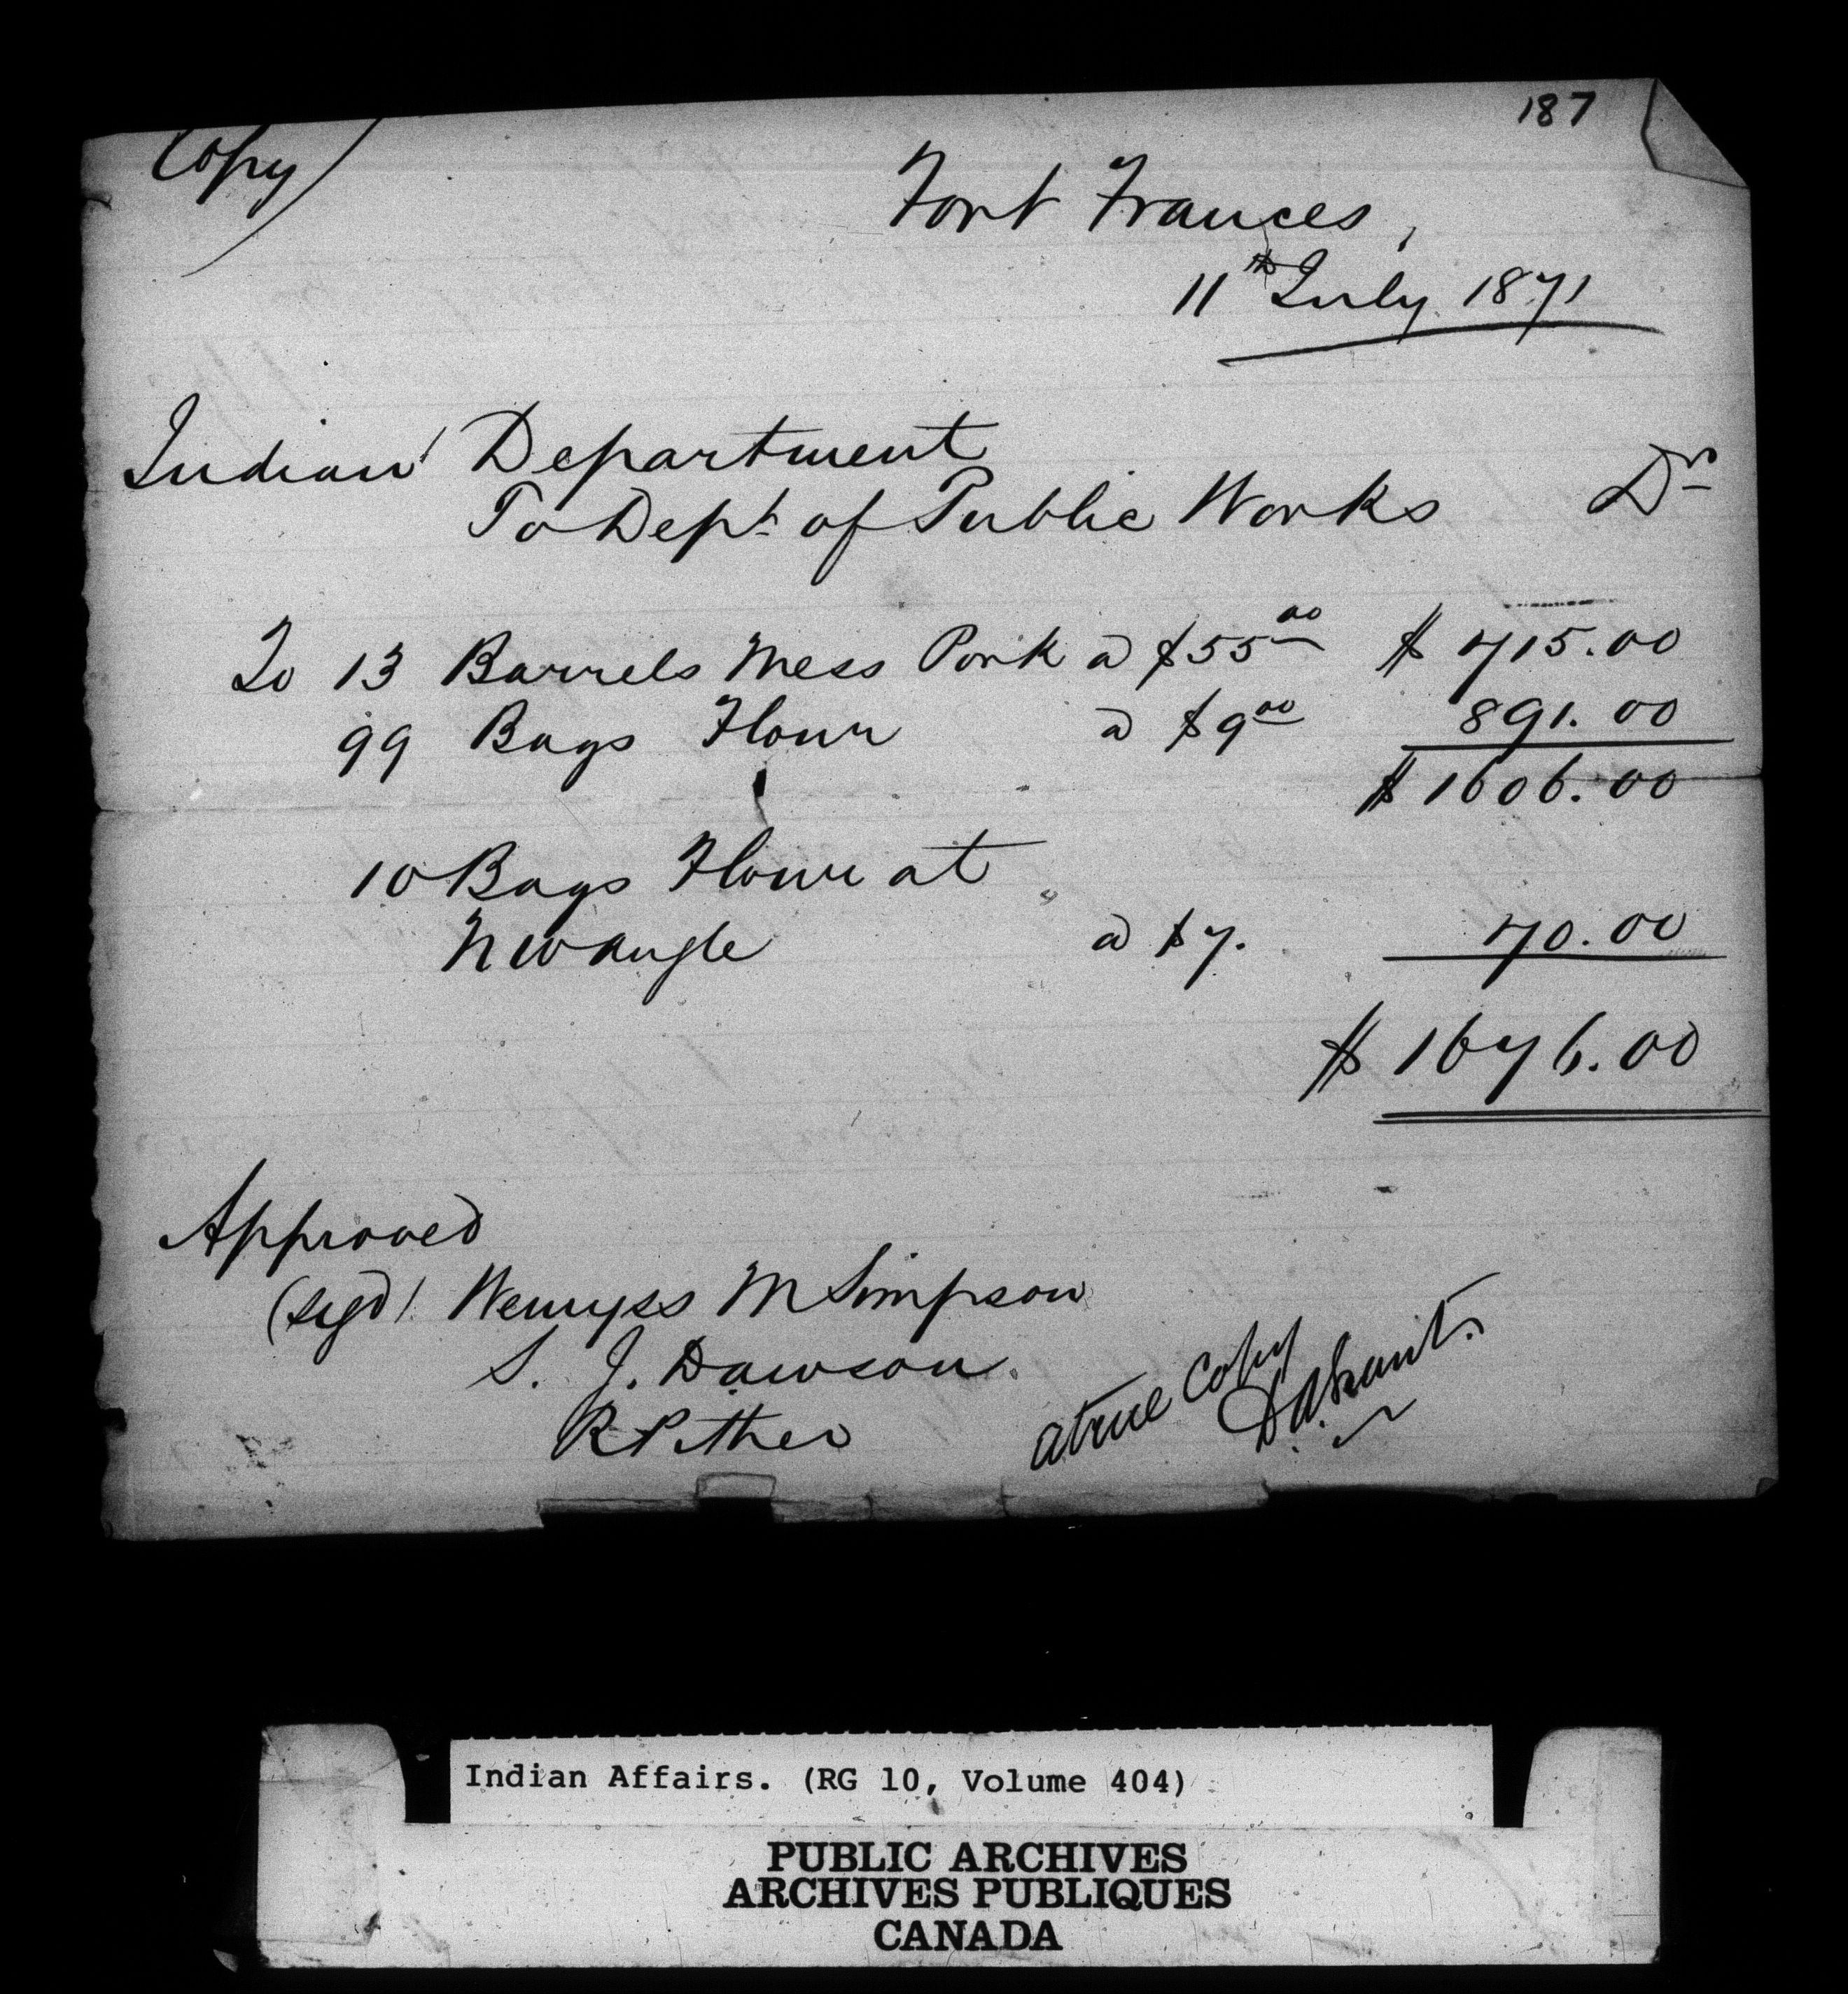 187
Copy
Fort Frances,
11th July 1871
Indian Department
To Dept. of Public Works Dr
To 13 Barrels Mess Pork a $55 00 $ 715.00
99 Bags Flour a $9 00 891.00
$ 1606.00
10 Bags Flour at
N W Angle a $7. 70.00
$ 1676.00
Approved
(sigd). Wemyss M Simpson
S. J. Dawson.
R Pither
a true Copy
Indian Affairs. (RG 10, Volume 404)
PUBLIC ARCHIVES
ARCHIVES PUBLIQUES
CANADA